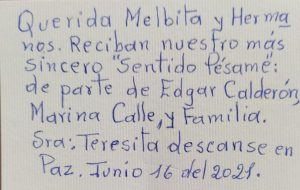 Querida Melbita y Herma
nos. Reciban nuestro más
sincero "Sentido Pésame":
de parte de Edgar Calderón,
Marina Calle, y Familia.
Sra: Teresita descanse en
Paz. Junio 16 del 2021.